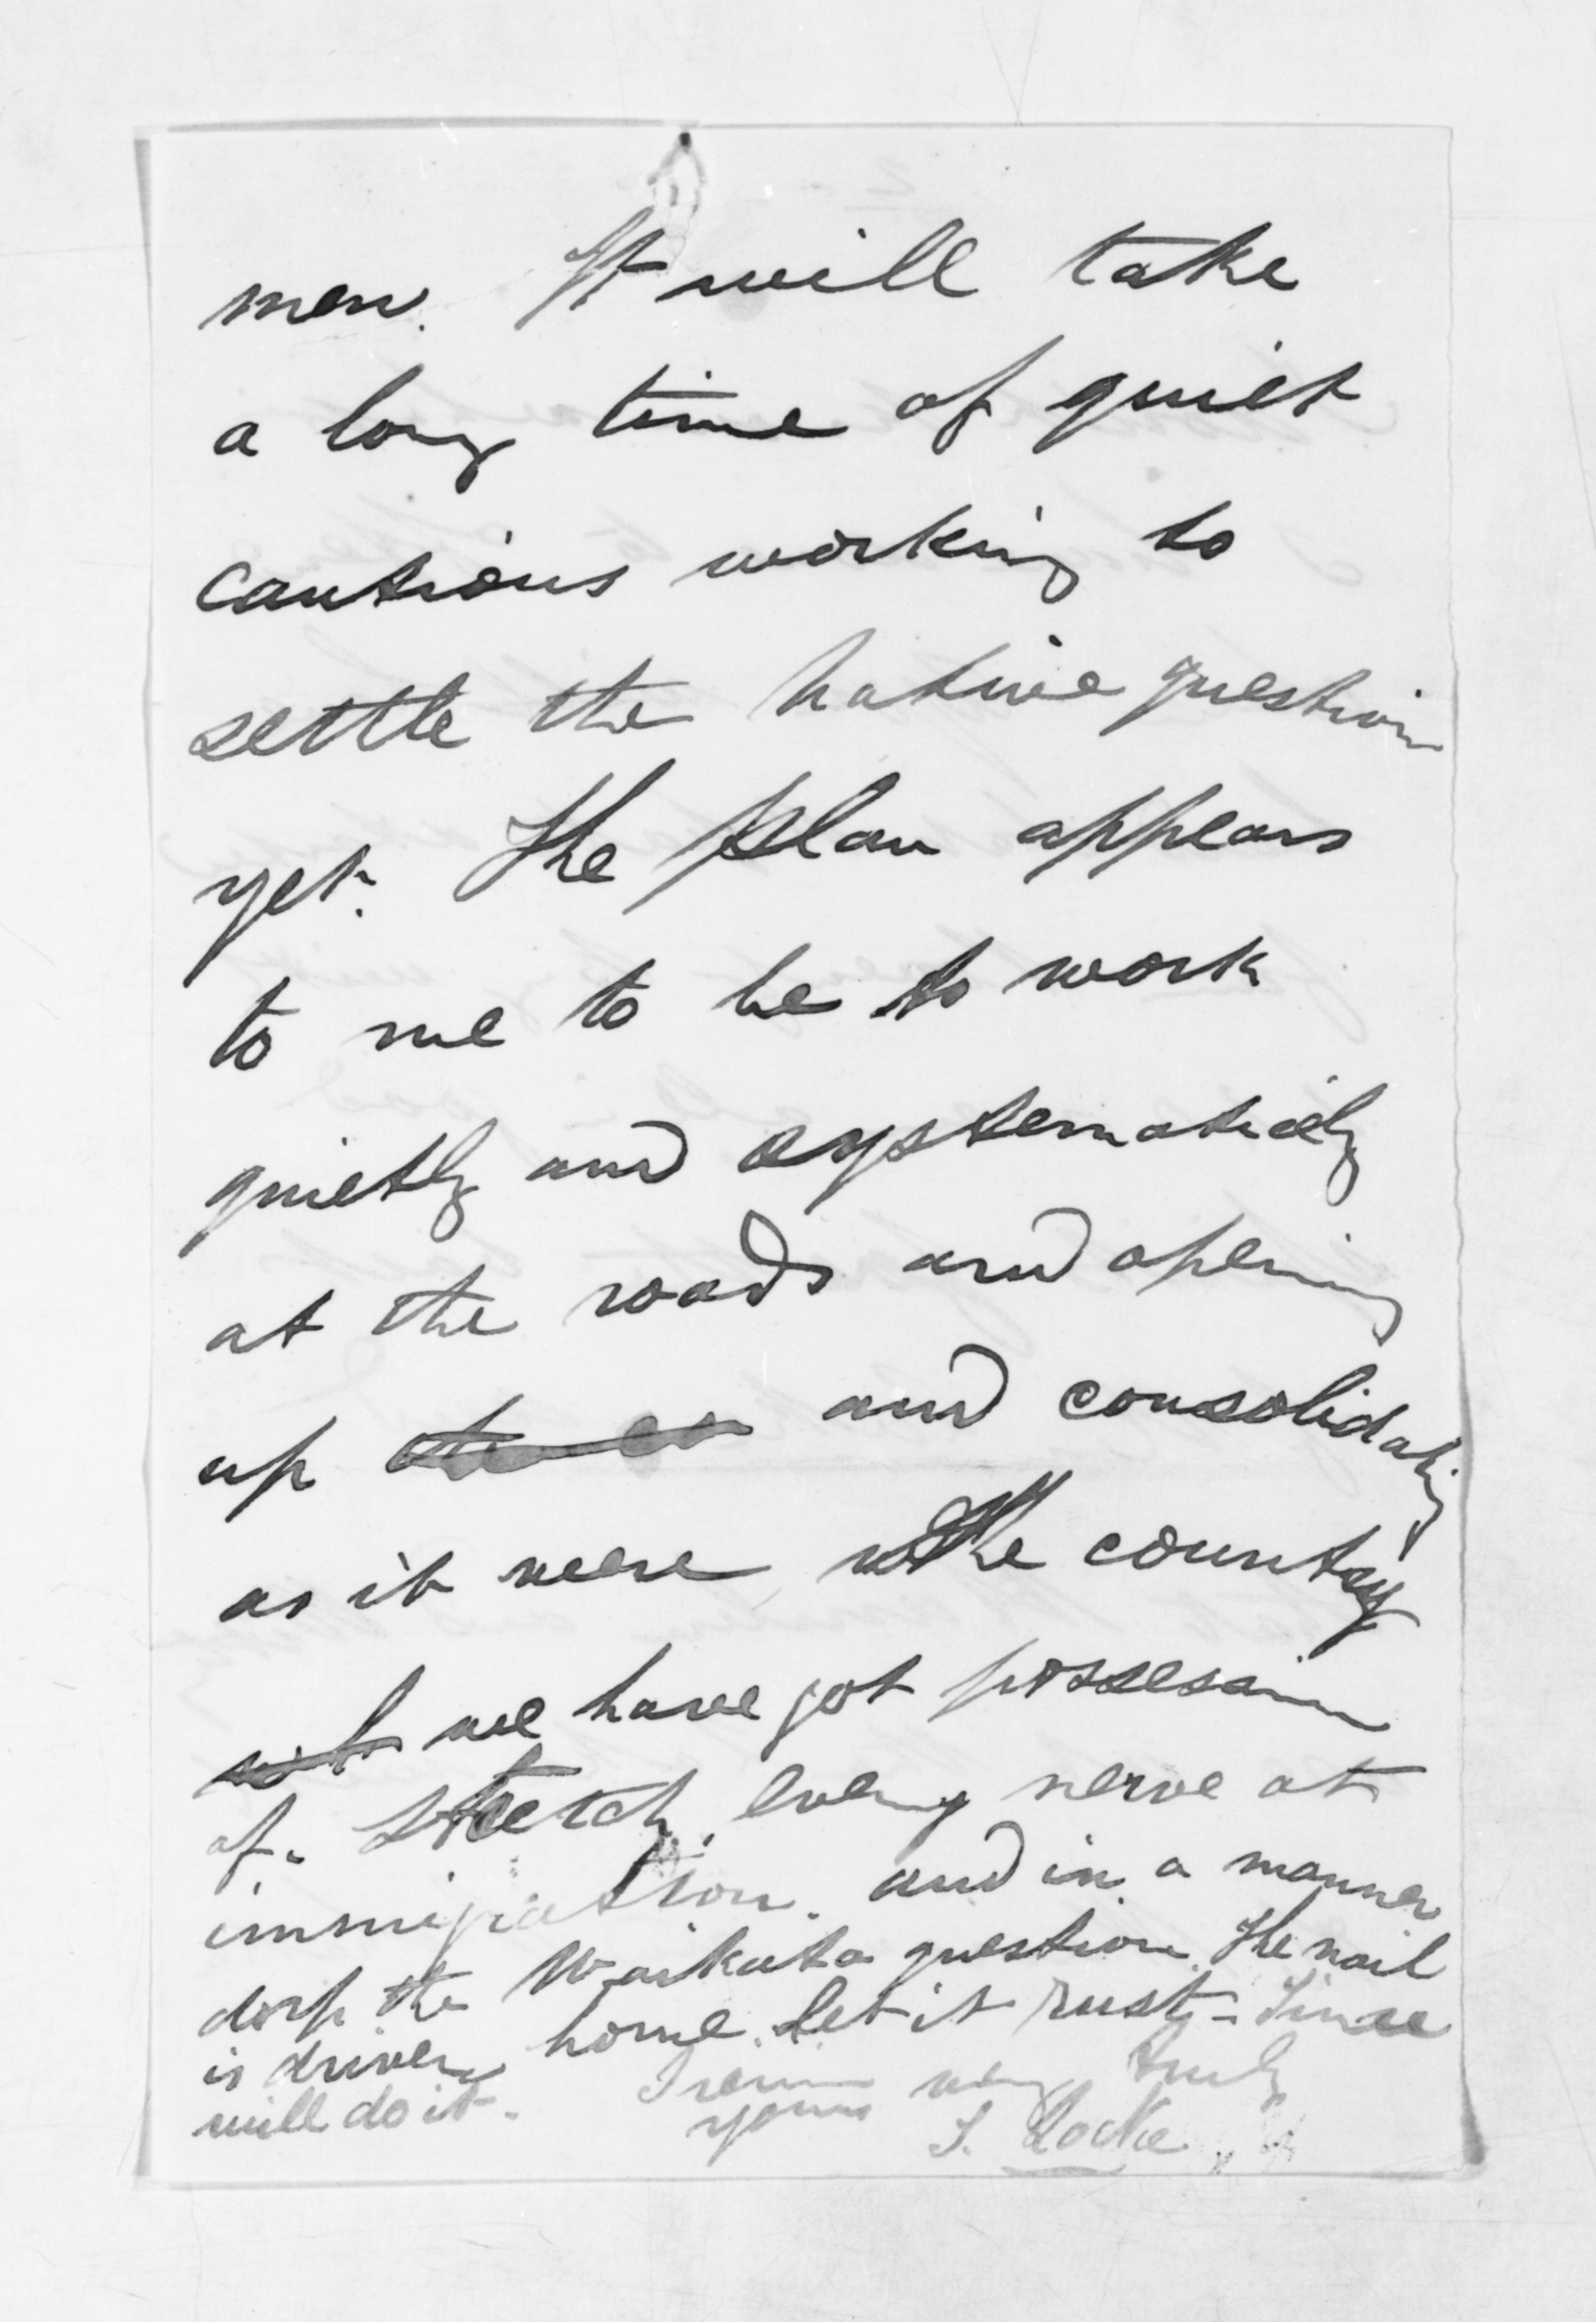 men. It will take
a long time of quiet
cautious working to
settle the native question
yet. The plan appears
to me to be to work
quietly and systematicly
at the roads and opening
up and consolidating
as it were the country
we have got possession
of. Stretch every nerve at
immigration. and in a manner
drop the Waikato question. The nail
is driven home. Let it rust - Time
will do it. I remain very truly
yours
S. Locke